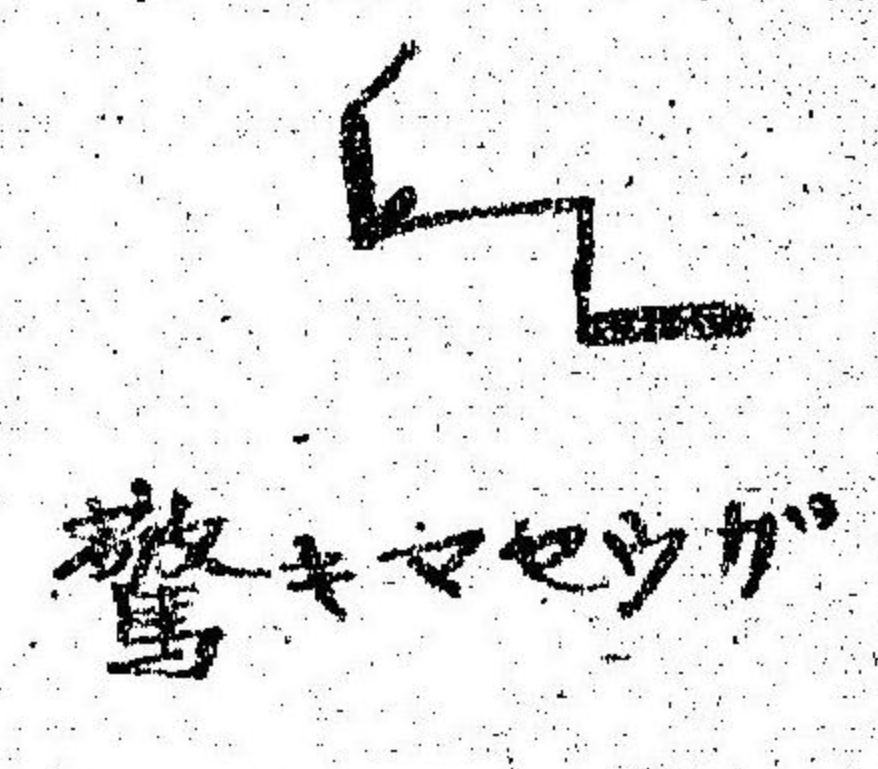 驚キマセウガ